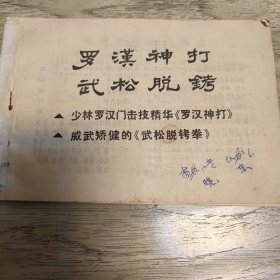 罗漢神打
武松脱铐
▲少林罗汉门击技精华《罗汉神打》
▲威武矫健的《武松脱铐拳》